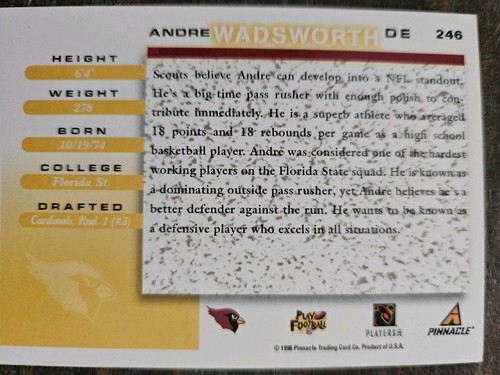 ANDRE WADSWORTH DE 246
HEIGHT
6'4"
WEIGHT
278
BORN
10/19/74
COLLEGE
Florida St.
DRAFTED
Cardinals, Rnd. 1 (#3)
Scouts believe Andre can develop into a NFL standout.
He's a big-time pass rusher with enough polish to con-
tribute immediately. He is a superb athlete who averaged
18 points and 18 rebounds per game as a high school
basketball player. Andre was considered one of the hardest
working players on the Florida State squad. He is known as
a dominating outside pass rusher, yet Andre believes he's a
better defender against the run. He wants to be known as
a defensive player who excels in all situations.
PLAY FOOTBALL
PLAYERS INC
PINNACLE
© 1998 Pinnacle Trading Card Co. Product of U.S.A.